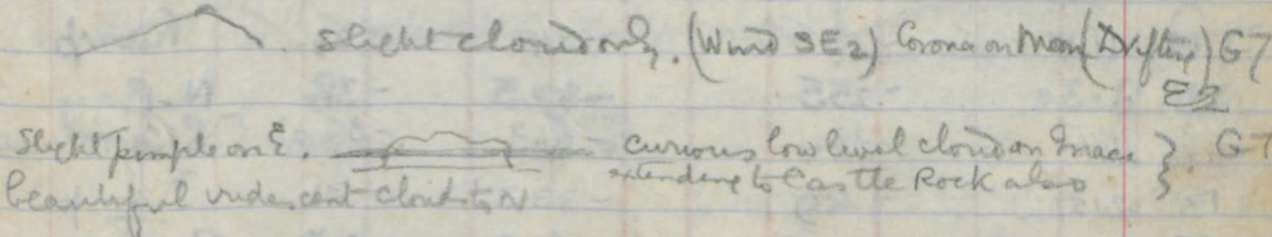 Slight cloud only. (Wind SE2) Corona on Moon (Drifting) G7
E2
Slight pimple on E. curious low level cloud on Inacc } G7
extending to Castle Rock also
beautiful iridescent clouds to N